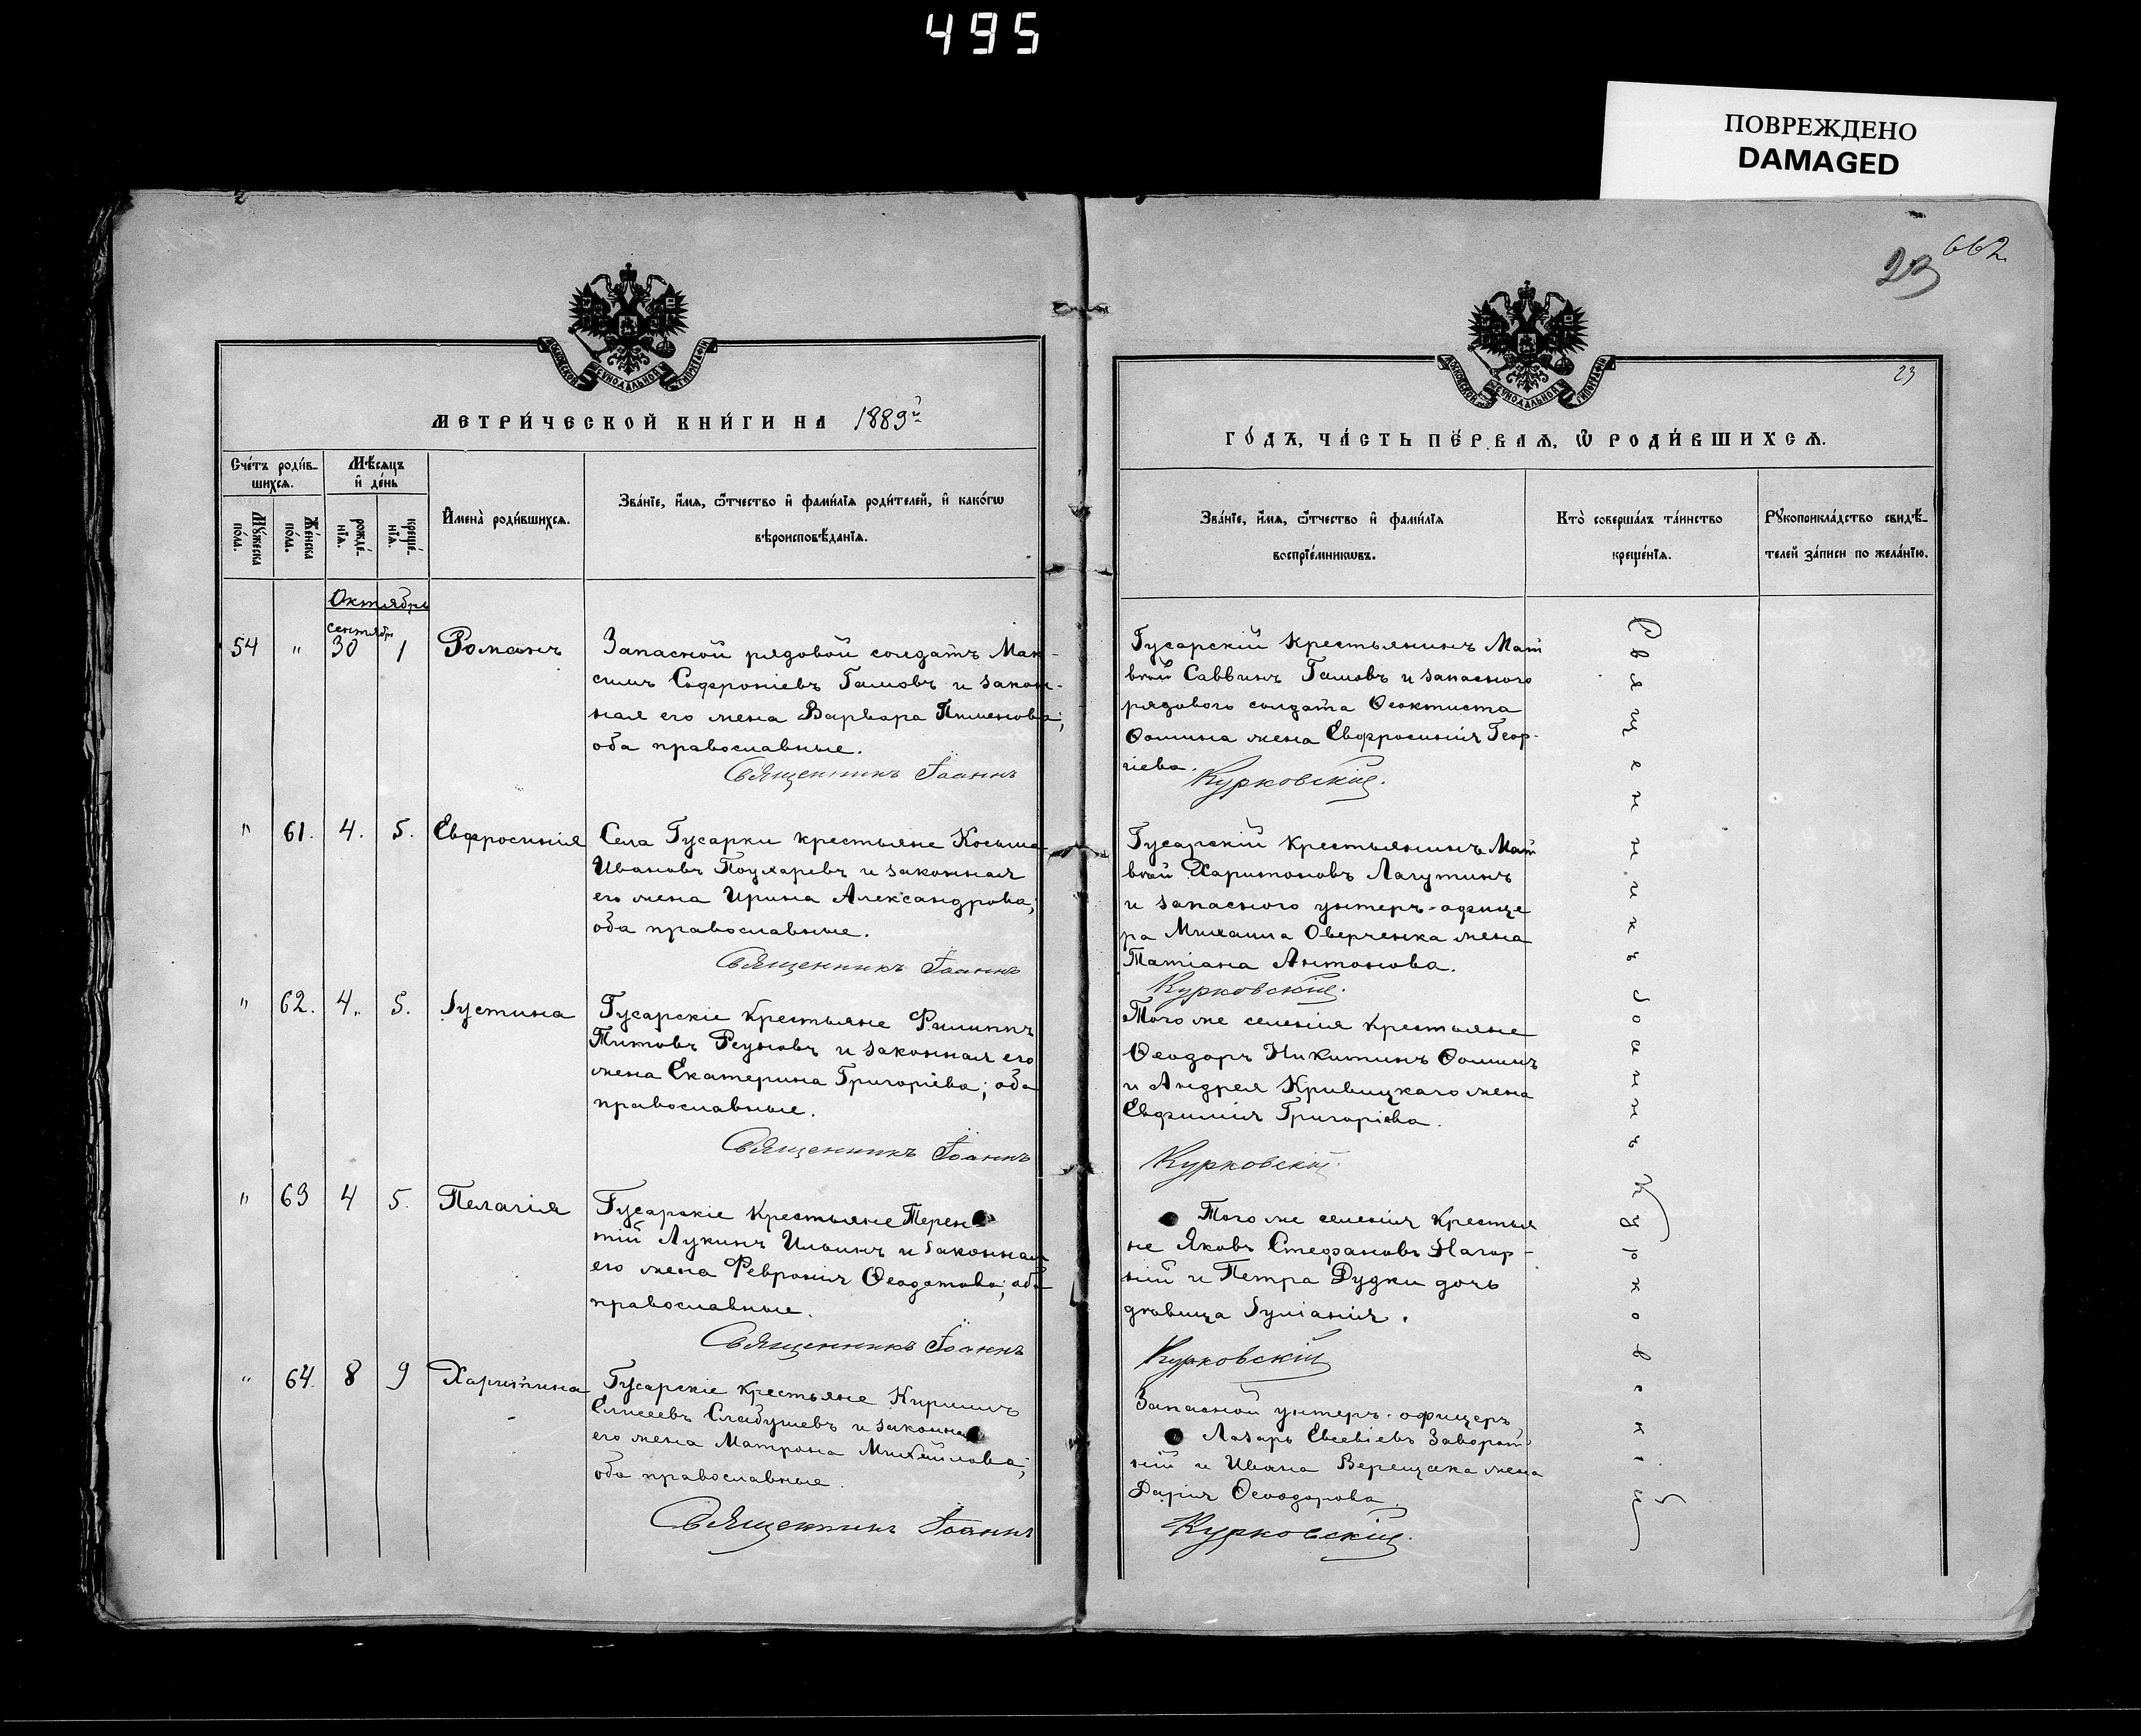 495
ПОВРЕЖДЕНО
DAMAGED
662
23
МЕТРИ́ЧЕСКОЙ КНИ́ГИ НА 1889й
Сче́тъ роди́в-
шихся.
Мѣ́сяцъ
и҆ де́нь
Мꙋ́жеска
по́ла.
Же́нска
по́ла.
рожде́-
нїѧ.
креще́-
нїѧ.
И҆мена̀ роди́вшихсѧ.
Зва́нїе, и҆́мѧ, ѻ҆́тчество и҆ фами́лїѧ роди́телей, и҆ како́гѡ
вѣроисповѣ́данїѧ.
Октябрь
54 " сентябрь 30 1 Романъ
Запасной рядовой солдатъ Мак-
симъ Софроніевъ Гамовъ и закон-
ная его жена Варвара Пименова;
оба православные.
Священникъ Іоаннъ
" 61. 4. 5. Евфросинія
Села Гусарки крестьяне Косьма
Ивановъ Поужаревъ и законная
его жена Ирина Александрова;
оба православные.
Священникъ Іоаннъ
" 62. 4. 5. Іустина
Гусарскіе крестьяне Филиппъ
Титовъ Реуновъ и законная его
жена Екатерина Григоріева; оба
православные.
Священникъ Іоаннъ
" 63 4 5. Пелагія
Гусарскіе крестьяне Терен
тій Лукинъ Ильинъ и законная
его жена Февронія Ѳеодотова; оба
православные.
Священникъ Іоаннъ
" 64. 8 9 Харитина
Гусарскіе крестьяне Кириллъ
Елисеевъ Слабушевъ и законная
его жена Матрона Михайлова;
оба православные.
Священникъ Іоаннъ
23
ГО́ДЪ, ЧА́СТЬ ПЕ́РВАѦ, Ѡ҆ РОДИ́ВШИХСѦ.
Зва́нїе, и҆́мѧ, ѻ҆́тчество и҆ фами́лїѧ
воспрїе́мникѡвъ.
Кто̀ соверша́лъ та́инство
креще́нїѧ.
Рꙋкоприкла́дство свидѣ́-
телей за́писи по жела́нїю.
Гусарскій крестьянинъ Мат
вѣй Саввинъ Гамовъ и запаснаго
рядового солдата Ѳеоктиста
Ѳомина жена Евфросинія Геор-
гіева.
Курковскій.
Гусарскій крестьянинъ Мат
вѣй Харитоновъ Лагутинъ
и запасного унтеръ-офице
ра Михаила Оверченка жена
Татіана Антонова.
Курковскій.
Того же селенія крестьяне
Ѳеодоръ Никитинъ Ѳоминъ
и Андрея Кривицкаго жена
Евфимія Григоріева.
Курковскій.
Того же селенія крестья
не Яковъ Стефановъ Нагор-
ній и Петра Дудки дочь
дѣвица Іуліанія.
Курковскій
Запасной унтеръ-офицеръ
Лазарь Евсевіевъ Заворот
ній и Ивана Верещака жена
Дарія Ѳеодорова.
Курковскій.
Священникъ Іоаннъ Курковскій